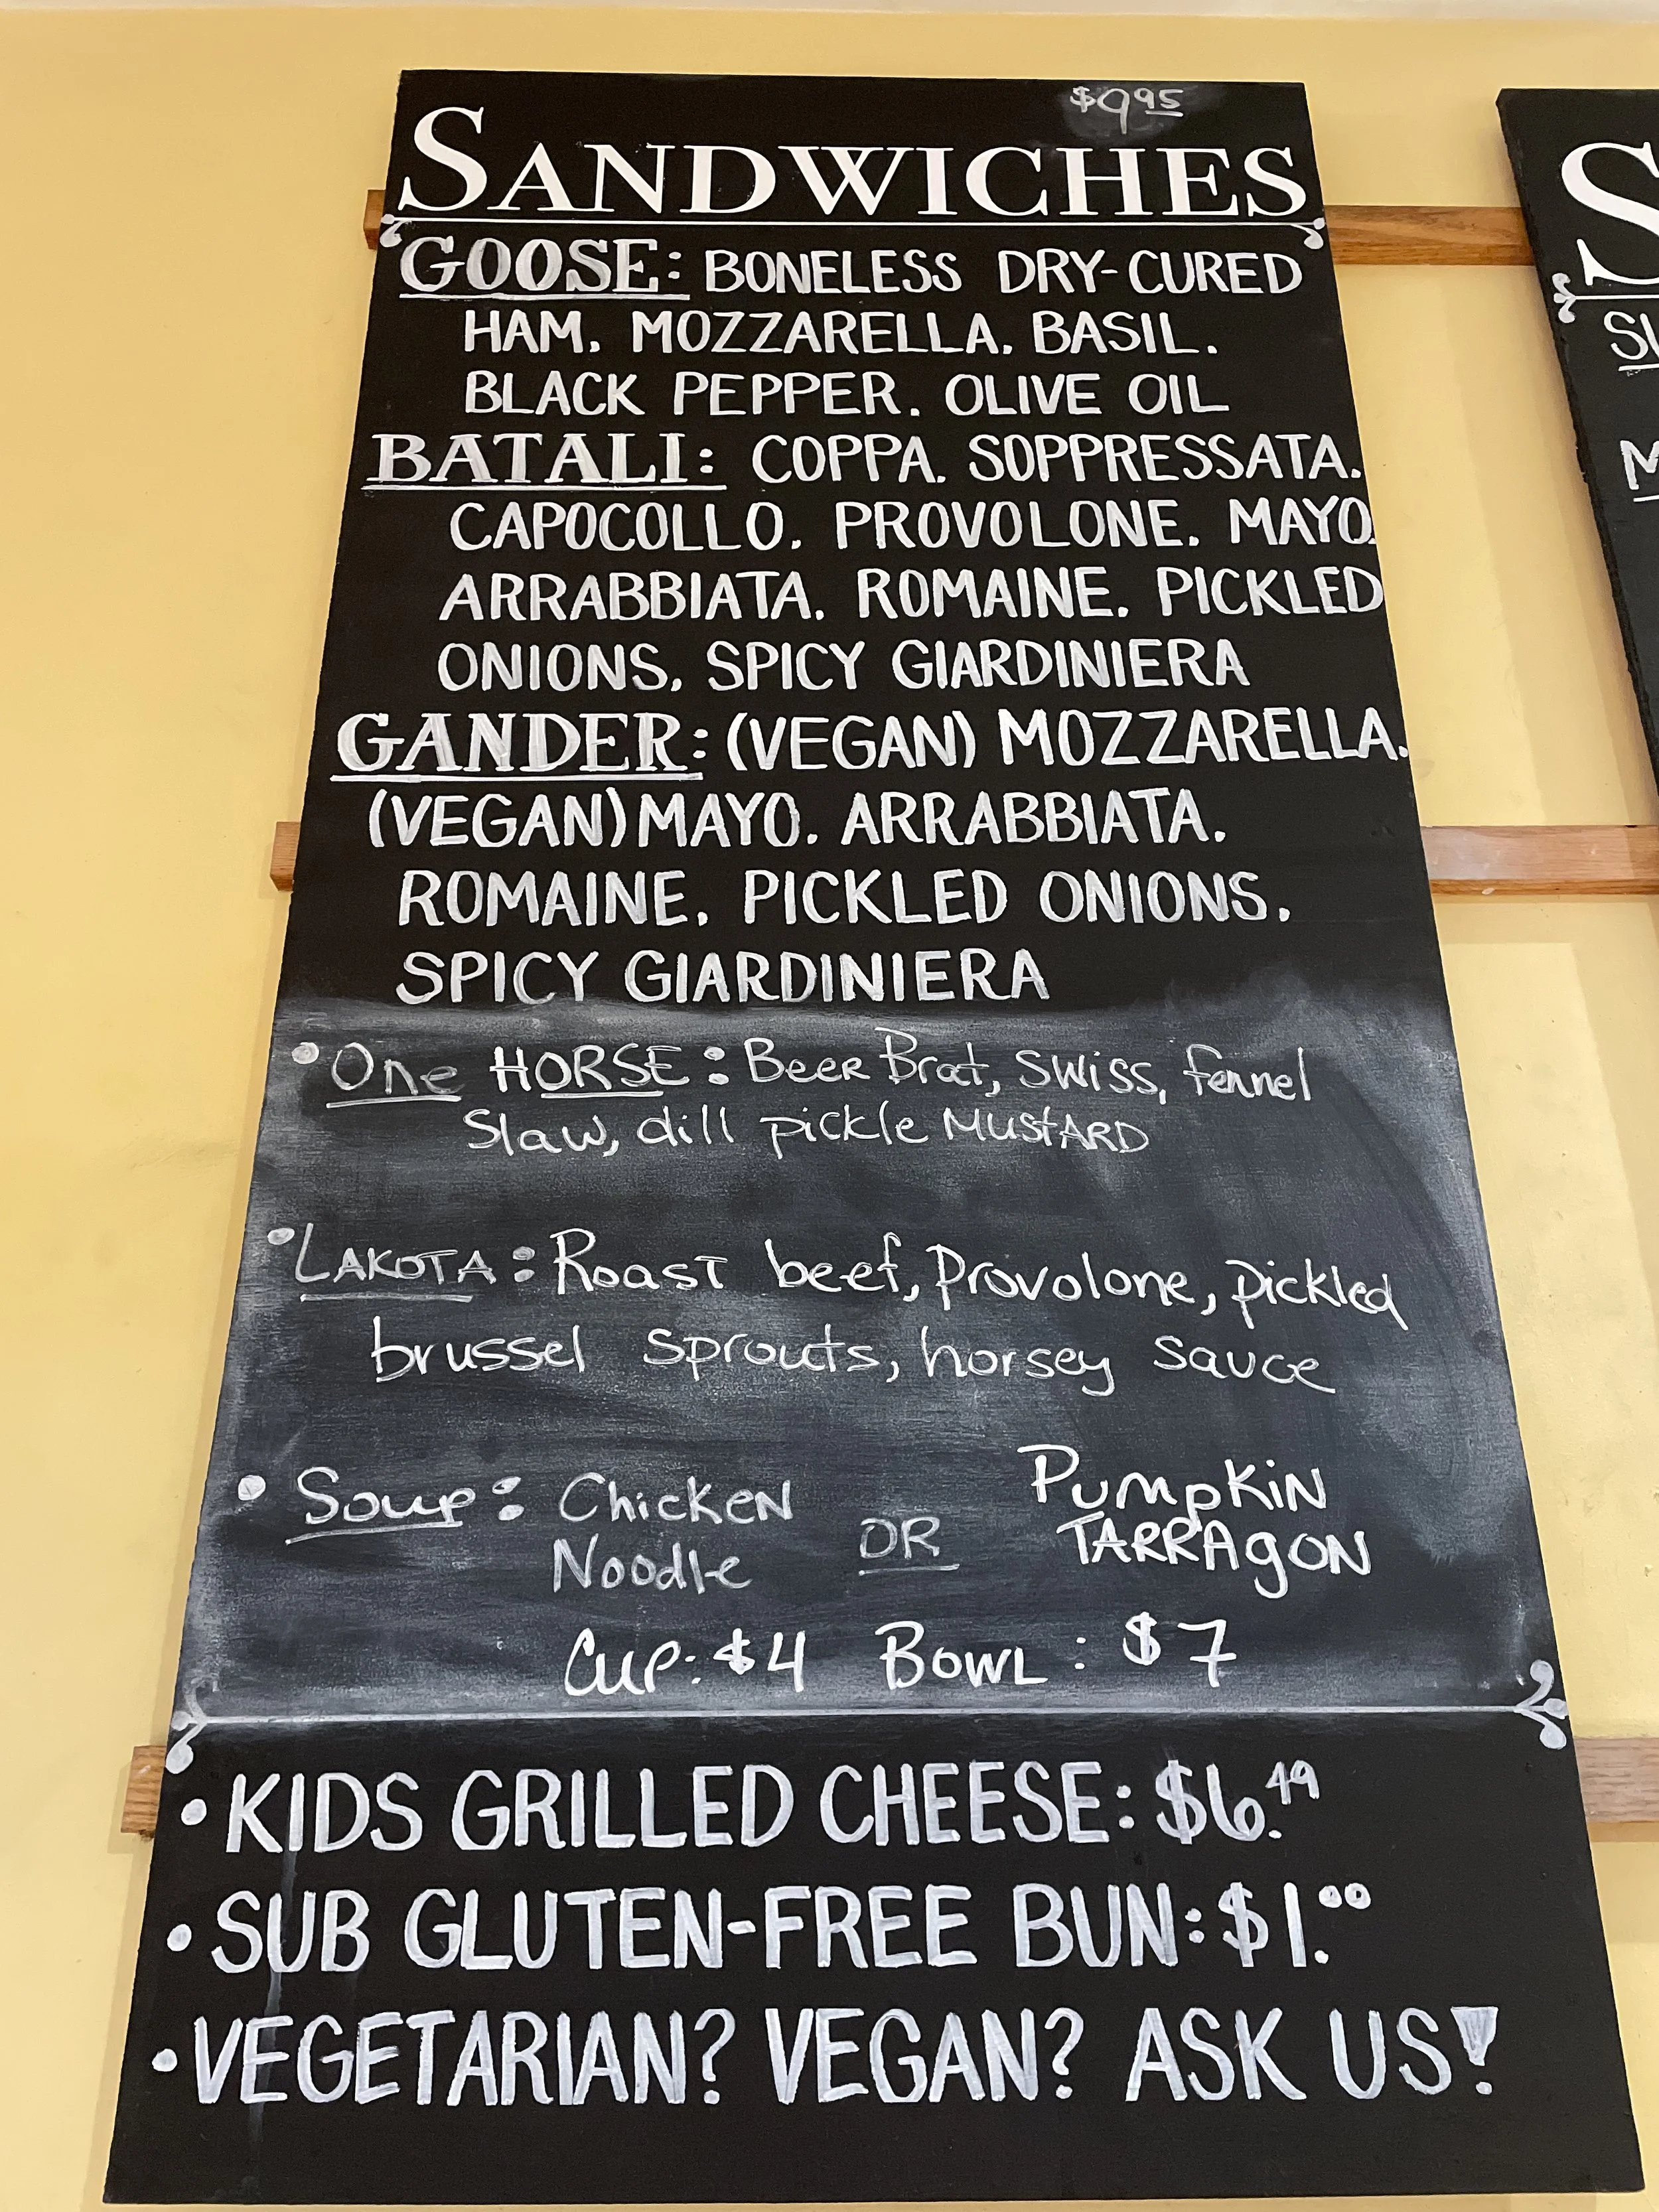 $9.95
SANDWICHES
GOOSE: BONELESS DRY-CURED
HAM. MOZZARELLA. BASIL.
BLACK PEPPER. OLIVE OIL
BATALI: COPPA. SOPPRESSATA.
CAPOCOLLO. PROVOLONE. MAYO.
ARRABBIATA. ROMAINE. PICKLED
ONIONS. SPICY GIARDINIERA
GANDER: (VEGAN) MOZZARELLA.
(VEGAN) MAYO. ARRABBIATA.
ROMAINE. PICKLED ONIONS.
SPICY GIARDINIERA
• One HORSE: Beer Brat, Swiss, fennel
Slaw, dill pickle MUStARD
• LAKOTA: Roast beef, Provolone, pickled
brussel sprouts, horsey sauce
• Soup: Chicken Noodle OR PUMpKiN TARRAgON
Cup: $4 Bowl: $7
• KIDS GRILLED CHEESE: $6.49
• SUB GLUTEN-FREE BUN: $1.00
• VEGETARIAN? VEGAN? ASK US!
S
M